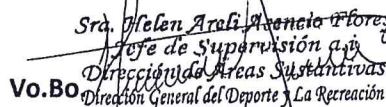 Sra. Helen Areli Asencio Flores
Jefe de Supervisión a.i
Vo.Bo. Dirección de Áreas Sustantivas
Dirección General del Deporte y La Recreación